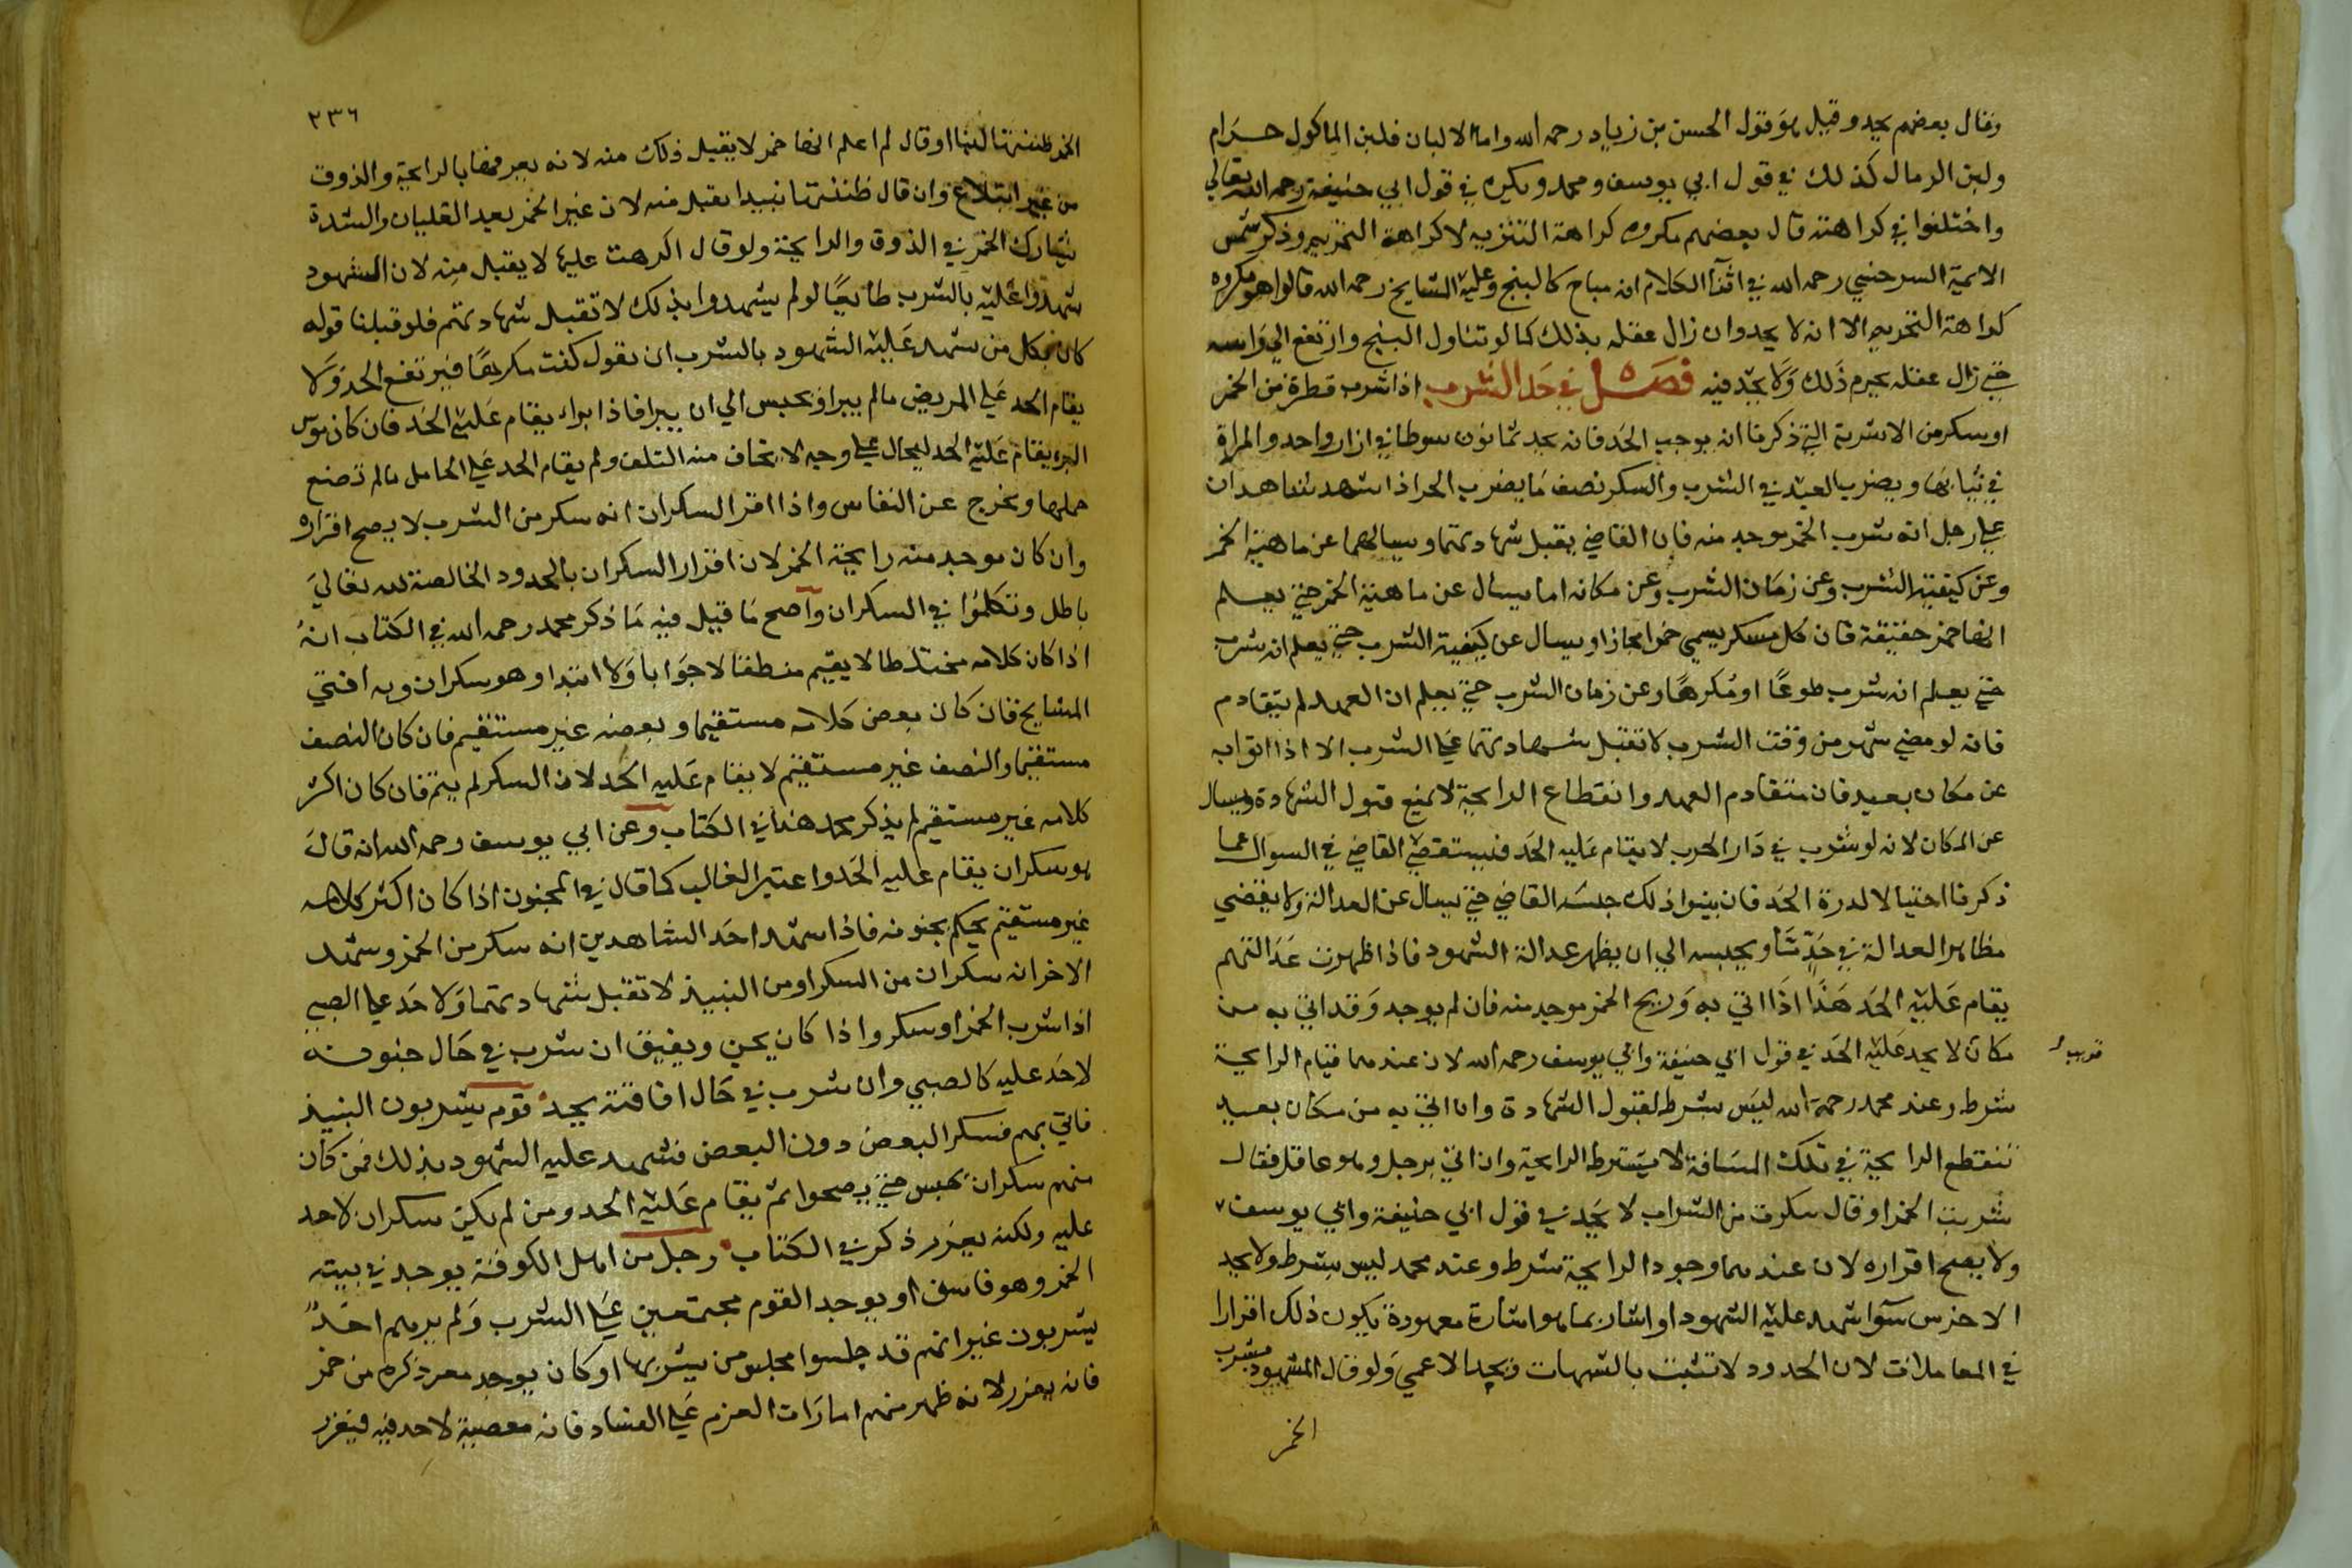 وقال بعضهم يحد وقيل هو قول الحسن بن زياد رحمه الله واما الالبان فلبن الماكول حرام
ولبن الرماك كذلك في قول ابي يوسف ومحمد ويكره في قول ابي حنيفة رحمه الله تعالى
واختلفوا في كراهته قال بعضهم مكروه كراهة التنزيه لا كراهة التحريم وذكر شمس
الائمة السرخسي رحمه الله في اثنا الكلام انه مباح كالبنج وعليه المشايخ رحمه الله قالوا هو مكروه
كراهة التحريم الا انه لا يحد وان زال عقله بذلك كما لو تناول البنج وارتفع الى راسه
حتى زال عقله يحرم ذلك ولا يحد فيه فصل في حد الشرب اذا شرب قطرة من الخمر
او سكر من الاشربة التي ذكرنا انه يوجب الحد فانه يحد ثمانون سوطا في ازار واحد والمراة
في ثيابها ويضرب العبد في الشرب والسكر نصف ما يضرب الحر اذا شهد شاهدان
على رجل انه شرب الخمر يوجد منه فان القاضي يقبل شهادتهما ويسالهما عن ماهية الخمر
وعن كيفية الشرب وعن زمان الشرب وعن مكانه اما يسال عن ماهية الخمر حتى يعلم
انها خمر حقيقة فان كل مسكر يسمى خمرا مجازا ويسال عن كيفية الشرب حتى يعلم انه شرب
حتى يعلم انه شرب طوعا او مكرها وعن زمان الشرب حتى يعلم ان العهد لم يتقادم
فانه لو مضى شهر من وقت الشرب لا تقبل شهادتهما على الشرب الا اذا اتوا به
عن مكان بعيد فان متقادم العهد وانقطاع الرايحة لا يمنع قبول الشهادة ويسال
عن المكان لانه لو شرب في دار الحرب لا يقام عليه الحد فيستقصي القاضي في السوال عما
ذكرنا احتيالا لدرة الحد فان بينوا ذلك جلسه القاضي حتى يسال عن العدالة ولا يقضي
مظاهر العدالة في حد ما ويحبسه الى ان يظهر عدالة الشهود فاذا ظهرت عدالتهم
يقام عليه الحد هذا اذا اتي به وريح الخمر يوجد منه فان لم يوجد وقد اتي به من
مكان لا يحد عليه الحد في قول ابي حنيفة وابي يوسف رحمه الله لان عندهما قيام الرايحة
قريب
شرط وعند محمد رحمه الله ليس بشرط لقبول الشهادة وان اتي به من مكان بعيد
تنقطع الرايحة في تلك المسافة لا يشترط الرايحة وان اتي برجل وهو عاقل فقال
شربت الخمر او قال سكرت من الشراب لا يحد في قول ابي حنيفة وابي يوسف
ولا يصح اقراره لان عندهما وجود الرايحة شرط وعند محمد ليس بشرط ولا يحد
الاخرس سوا شهد عليه الشهود او اشار بما هو اشارة معهودة يكون ذلك اقرارا
في المعاملات لان الحدود لا تثبت بالشبهات ويحد الاعمى ولو قال المشهود بشرب
الخمر
٢٣٦
الخمر ظننتها لبنا او قال لم اعلم انها خمر لا يقبل ذلك منه لانه يعرفها بالرايحة والذوق
من غير ابتلاع وان قال ظننتها نبيدا يقبل منه لان غير الخمر بعد الغليان والشدة
يشارك الخمر في الذوق والرايحة ولو قال اكرهت عليها لا يقبل منه لان الشهود
شهدوا عليه بالشرب طايعا لو لم يشهدوا بذلك لا تقبل شهادتهم فلو قبلنا قوله
كان كل من شهد عليه الشهود بالشرب ان يقول كنت مكرها فيرتفع الحد ولا
يقام الحد على المريض مالم يبرا ويحبس الى ان يبرا فاذا براء يقام عليه الحد فان كان
البرء يقام عليه الحد للحال على وجه لا يخاف منه التلف ولم يقام الحد على الحامل مالم تضع
حملها وتخرج عن النفاس واذا اقر السكران انه سكر من الشرب لا يصح اقراره
وان كان يوجد منه رايحة الخمر لان اقرار السكران بالحدود الخالصة لله تعالى
باطل وتكلموا في السكران واصح ما قيل فيه ما ذكر محمد رحمه الله في الكتاب انه
اذا كان كلامه مختلطا لا يقيم منطقا لا جوابا ولا ابتدا وهو سكران وبه افتى
المشايخ فان كان بعض كلامه مستقيما وبعضه غير مستقيم فان كان النصف
مستقيما والنصف غير مستقيم لا يقام عليه الحد لان السكر لم يتم فان كان اكثر
كلامه غير مستقيم لم يذكر محمد هذا في الكتاب وعن ابي يوسف رحمه الله انه قال
هو سكران يقام عليه الحد واعتبر الغالب كما قال في المجنون اذا كان اكثر كلامه
غير مستقيم يحكم بجنونه فاذا شهد احد الشاهدين انه سكر من الخمر وشهد
الاخر انه سكران من السكر او من النبيذ لا تقبل شهادتهما ولا حد على الصبي
اذا شرب الخمر او سكر واذا كان يجن ويفيق ان شرب في حال جنونه
لا حد عليه كالصبي وان شرب في حال افاقته يحد قوم يشربون النبيذ
فاتي بهم فسكر البعض دون البعض فشهد عليه الشهود بذلك فمن كان
منهم سكران يحبس حتى يصحوا ثم يقام عليه الحد ومن لم يكن سكران لا حد
عليه ولكنه يعزر ذكر في الكتاب رجل من اهل الكوفة يوجد في بيته
الخمر وهو فاسق او يوجد القوم مجتمعين على الشرب ولم يرهم احد
يشربون غير انهم قد جلسوا مجلس من يشربها او كان يوجد معه ذكره من خمر
فانه يعزر لانه ظهر منهم امارات العزم على الفساد فانه معصية لا حد فيه فيعزر